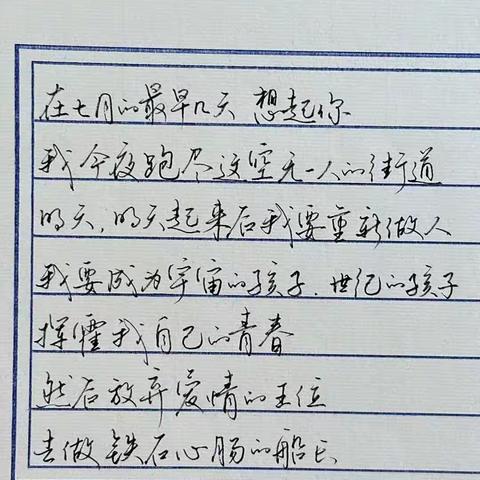 在七月的最早几天 想起你
我今夜跑尽这空无一人的街道
明天,明天起来后我要重新做人
我要成为宇宙的孩子.世纪的孩子
挥霍我自己的青春
然后放弃爱情的王位
去做铁石心肠的船长